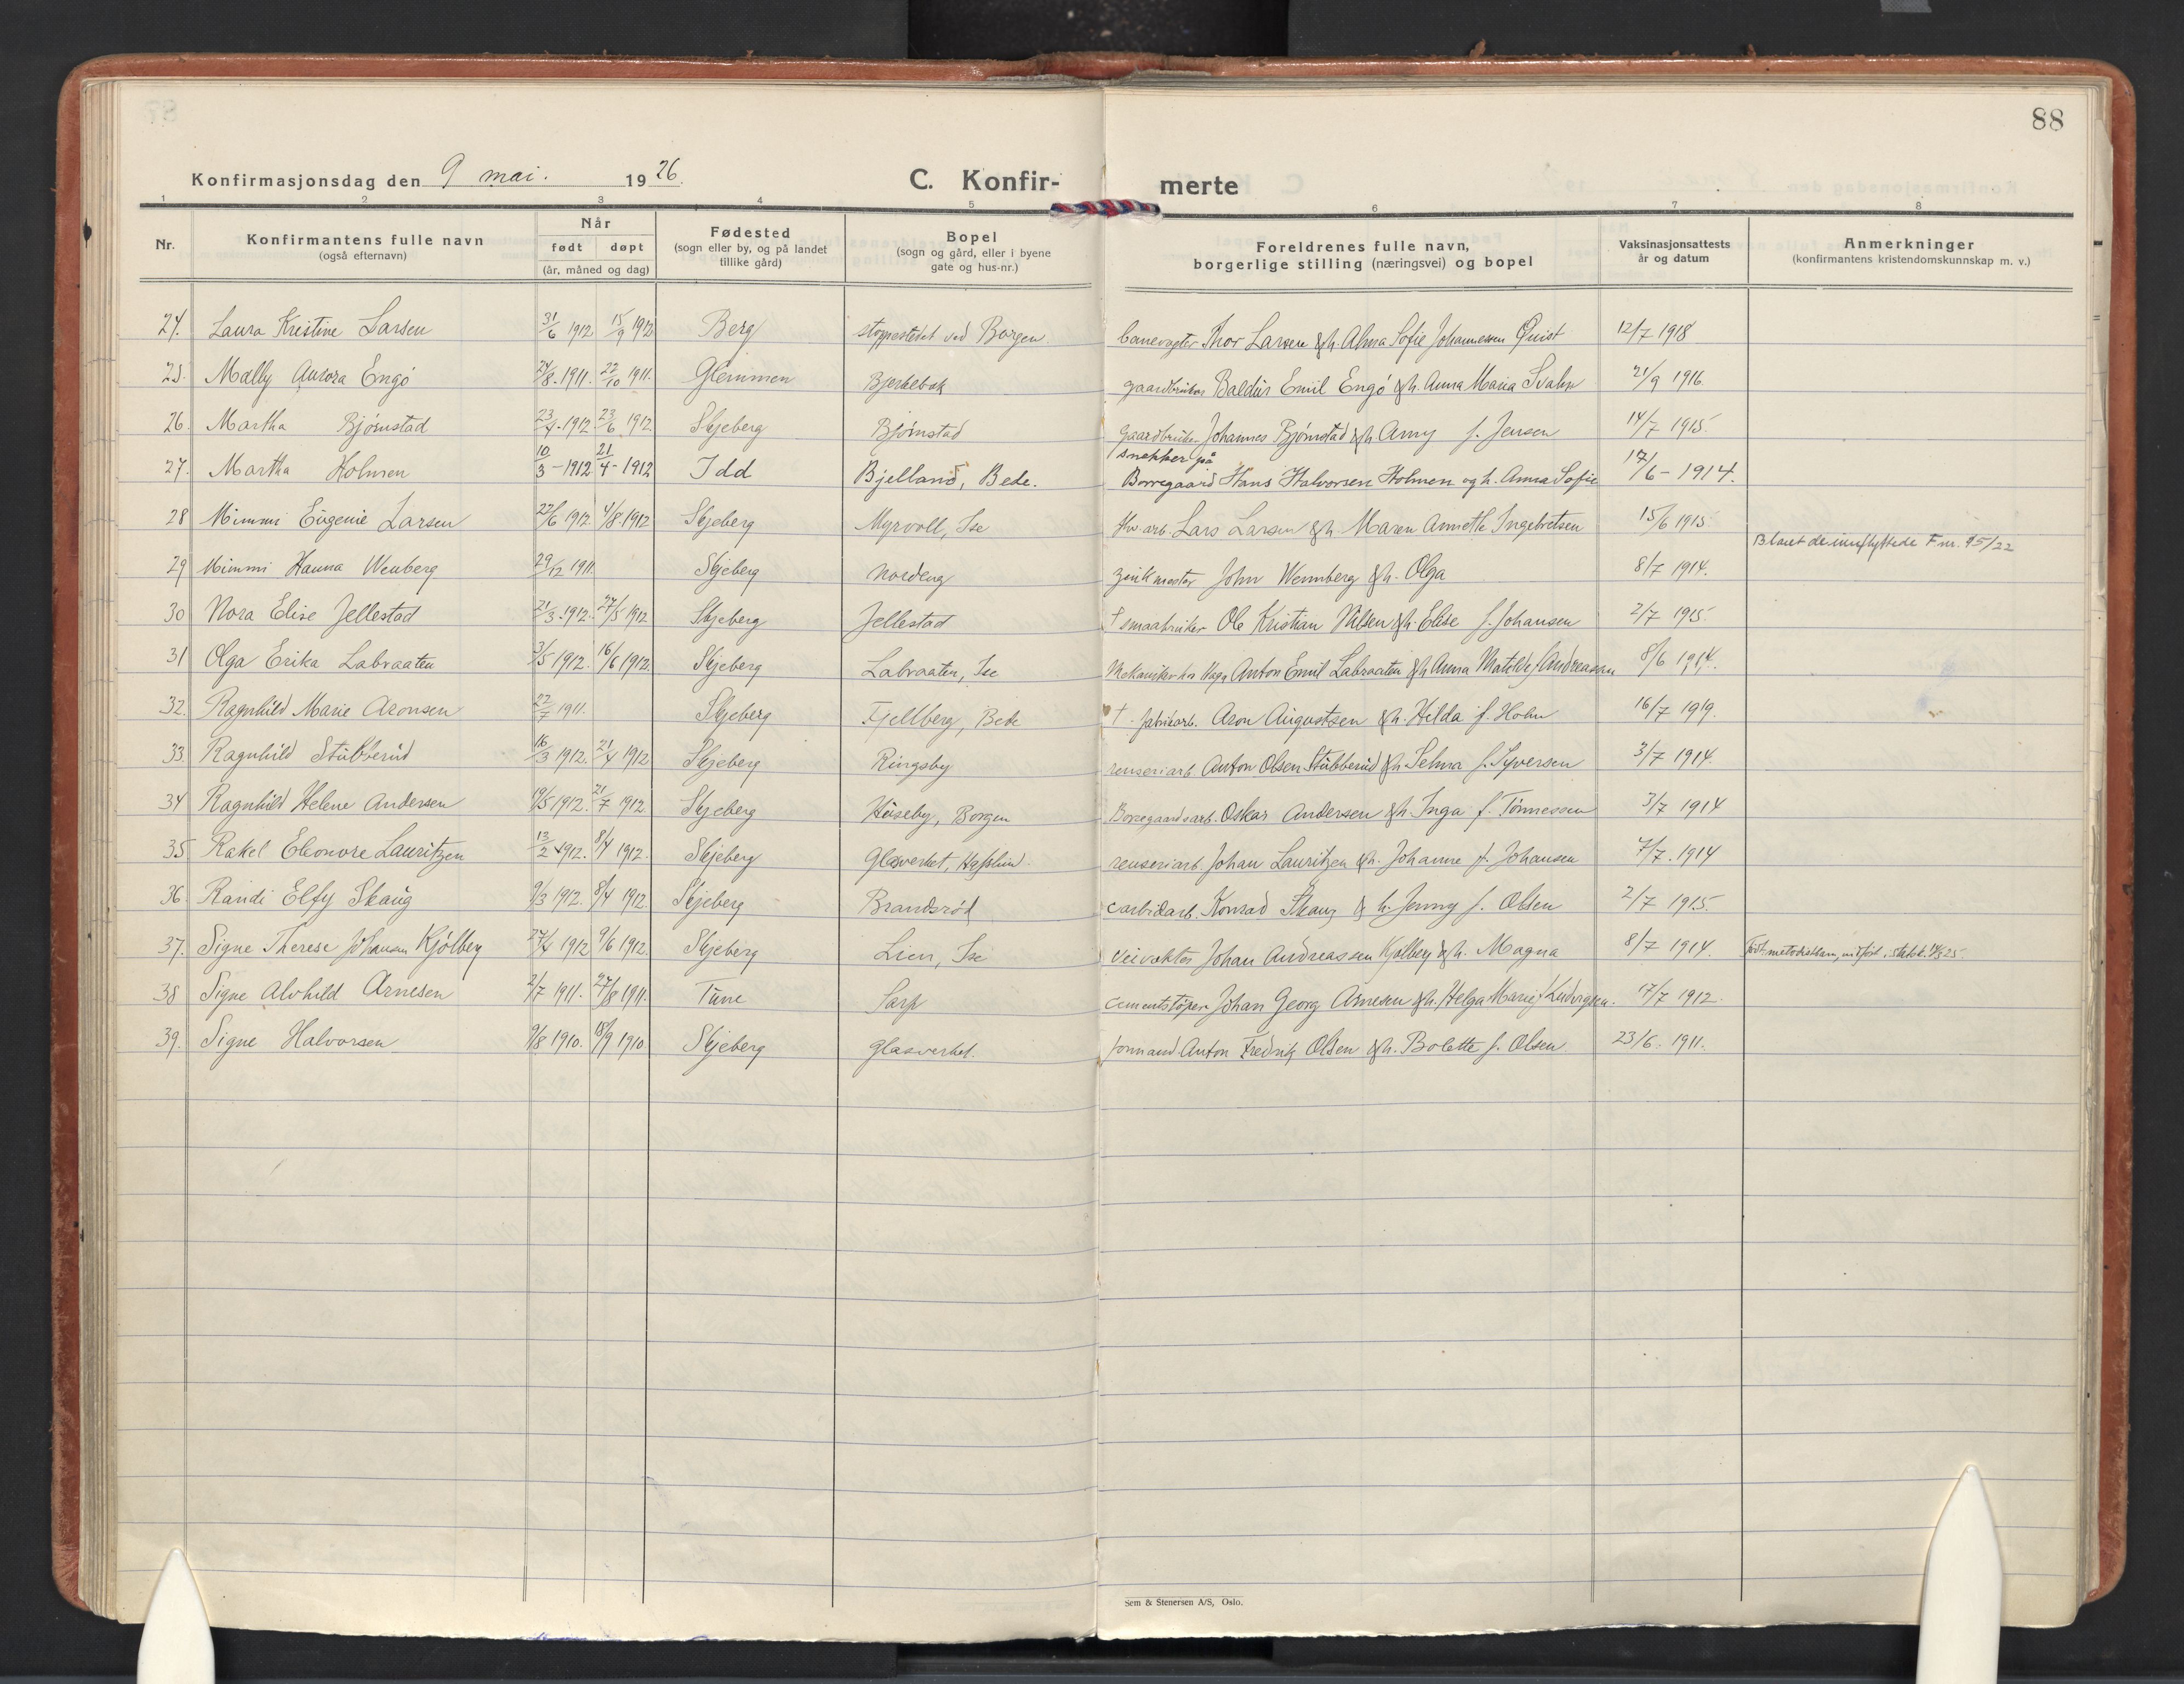 88
Konfirmasjonsdag den 9 mai. 1926.
C. Konfir- merte
1 2 3 4 5 6 7 8
Nr.
Konfirmantens fulle navn
(også efternavn)
Når
født døpt
(år, måned og dag)
Fødested
(sogn eller by, og på landet
tillike gård)
Bopel
(sogn og gård, eller i byene
gate og hus-nr.)
Foreldrenes fulle navn,
borgerlige stilling (næringsvei) og bopel
Vaksinasjonsattests
år og datum
Anmerkninger
(konfirmantens kristendomskunnskap m. v.)
24. Laura Kristine Larsen 31/6 1912 15/9 1912 Berg stoppestedet ved Borgen banevogter Thor Larsen & h. Alma Sofie Johannessen Quist 12/7 1918
25. Mally Aurora Engó 24/8. 1911. 22/10 1911. Glemmen Bjerkebæk gaardbruker Baldur Emil Engó & h. Anna Maria Svahn 21/9 1916
26. Martha Bjórnstad 23/4. 1912. 23/6 1912 Skjeberg Bjórnstad gaardbruker Johannes Bjórnstad & h. Amy f. Jensen 14/7 1915.
27. Martha Holmen 10/3 - 1912. 21/4 - 1912 Idd Bjelland, Bede. snekker på Borregaard Hans Halvorsen Holmen og h. Anna Sofie 17/6 - 1914.
28 Mimmi Eugenie Larsen 22/6 1912 4/8. 1912 Skjeberg Myrvoll, Ise Hw. arb. Lars Larsen & h. Maren Annethe Ingebretsen 15/6 1915
29 Mimmi Hanna Wenberg 29/12 1911 Skjeberg Nordeng zinkmester John Wennberg & h. Olga 8/7 1914. Blant de innflyttede F nr. 95/22
30 Nora Elise Jellestad 21/3. 1912. 27/5 1912 Skjeberg Jellestad † smaabruker Ole Kristian Nilsen & h. Elise f. Johansen 2/7 1915.
31 Olga Erika Labraaten 3/5 1912. 16/6 1912. Skjeberg Labraaten, Ise Mekaniker hos Hage Anton Emil Labraaten & h. Anna Matilde f. Andreassen 8/6 1914.
32. Ragnhild Marie Aronsen 22/7 1911. Skjeberg Fjellberg, Bede † fabrikarb. Aron Augustsen & h. Hilda f. Holm 16/7 1919.
33. Ragnhild Stubberud 16/3 1912. 21/4 1912 Skjeberg Ringsby renseriarb. Anton Olsen Stubberud & h. Selma f. Syversen 3/7 1914.
34 Ragnhild Helene Andersen 19/5 1912. 21/7 1912 Skjeberg Huseby, Borgen Borregaardsarb. Oskar Andersen & h. Inga f. Tónnessen 3/7 1914
35 Rakel Eleonore Lauritzen 13/2 1912. 8/4 1912. Skjeberg Glasverket, Hafslund. renseriarb. Johan Lauritzen & h. Johanne f. Johansen 7/7. 1914
36. Randi Elfy Skaug 9/3 1912. 8/4 1912. Skjeberg Brandsród carbidarb. Konrad Skaug & h. Jenny f. Olsen 2/7 1915.
37. Signe Therese Johansen Kjólberg 27/4 1912 9/6 1912. Skjeberg Lien, Ise veivokter Johan Andreassen Kjólberg & h. Magna 8/7 1914. Fódt metodistbarn, utfórt i statsk.
38 Signe Alvhild Arnesen 2/7 1911. 27/8 1911. Tune Sarp cementstóper Johan Georg Arnesen & h. Helga Marie f. Ludvigsen. 17/7 1912.
39. Signe Halvorsen 9/8 1910. 18/9 1910. Skjeberg Glasverket. formand Anton Fredrik Olsen & h. Bolette f. Olsen 23/6. 1911.
Sem & Stenersen A/S, Oslo.